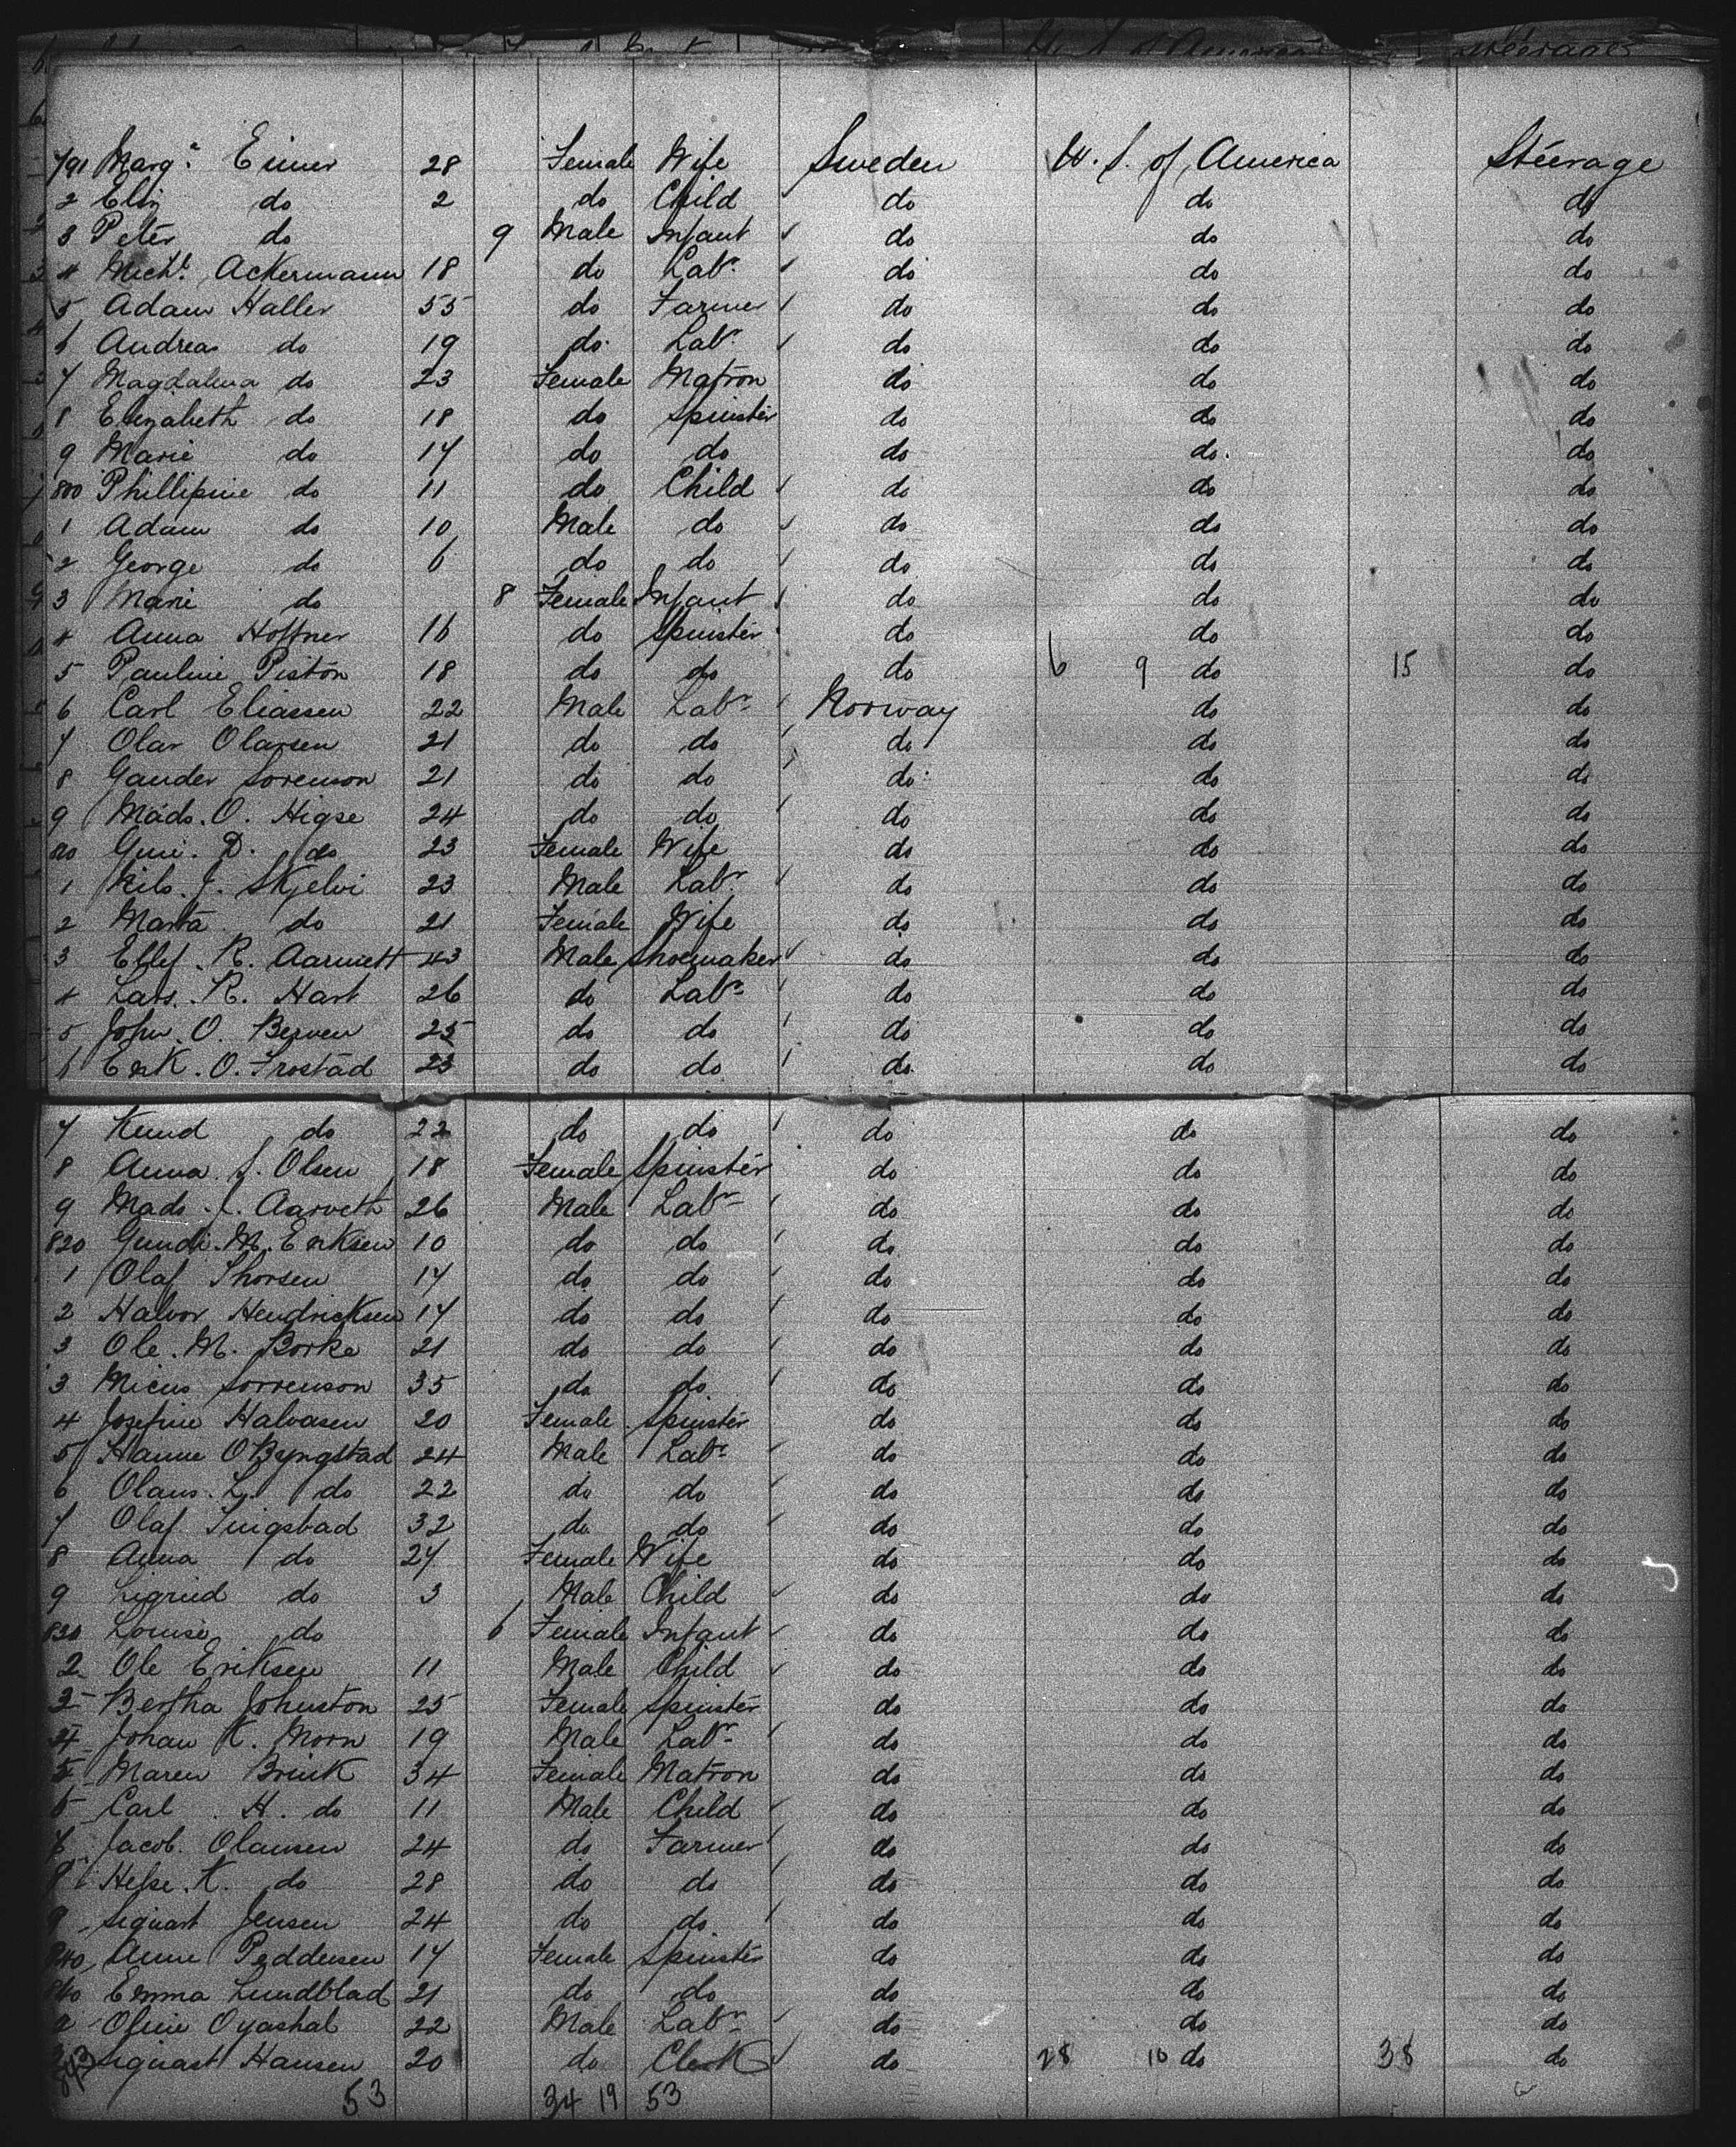 U. S. of America Steerage
791 Margt Eimer 28 Female Wife Sweden U. S. of America Steerage
2 Eliz do 2 do Child do do do
3 Peter do 9 Male Infant do do do
4 Michl Ackermann 18 do Labr do do do
5 Adam Haller 55 do Farmer do do do
6 Andreas do 19 do Labr do do do
7 Magdalena do 23 Female Matron do do do
8 Elizabeth do 18 do Spinster do do do
9 Marie do 14 do do do do do
800 Phillipine do 11 do Child do do do
1 Adam do 10 Male do do do do
2 George do 6 do do do do do
3 Marie do 8 Female Infant do do do
4 Anna Hoffner 16 do Spinster do do do
5 Pauline Piston 18 do do do 6 9 do 15 do
6 Carl Eliassen 22 Male Labr Norway do do
7 Olar Olarsen 21 do do do do do
8 Gander Sorenson 21 do do do do do
9 Mads. O. Higse 24 do do do do do
Guri. D. do 23 Female Wife do do do
1 Nils. J. Skjelvi 23 Male Labr do do do
2 Marta do 21 Female Wife do do do
3 Ellef. R. Aarnett 43 Male Shoemaker do do do
4 Lars. R. Hart 26 do Labr do do do
5 John. O. Berven 25 do do do do do
6 Erik. O. Frostad 23 do do do do do
7 Knud do 22 do do do do do
8 Anna. S. Olsen 18 Female Spinster do do do
9 Mads. Aarveth 26 Male Labr do do do
820 Gundi. M. Eriksen 10 do do do do do
1 Olaf Thorsen 17 do do do do do
2 Halvor Hendricksen 17 do do do do do
3 Ole. M. Borke 21 do do do do do
3 Micus Sorrenson 35 do do do do do
4 Josefine Halvasen 20 Female Spinster do do do
5 Hanne O Byngstad 24 Male Labr do do do
6 Olaus. L. do 22 do do do do do
7 Olaf Tingstad 32 do do do do do
8 Anna do 27 Female Wife do do do
9 Sigrid do 3 Male Child do do do
830 Louise do 6 Female Infant do do do
2 Ole Eriksen 11 Male Child do do do
3 Bertha Johnston 25 Female Spinster do do do
4 Johan K. Morn 19 Male Labr do do do
5 Maren Brink 34 Female Matron do do do
6 Carl. H. do 11 Male Child do do do
7 Jacob. Olausen 24 do Farmer do do do
8 K. do 28 do do do do do
9 Siguart Jensen 24 do do do do do
840 Anne Peddersen 17 Female Spinster do do do
840 Emma Lundblad 21 do do do do do
2 Oline Oyashal 22 Male Labr do do do
843 Siguart Hansen 20 do Clerk do 28 10 do 38 do
53 34 19 53